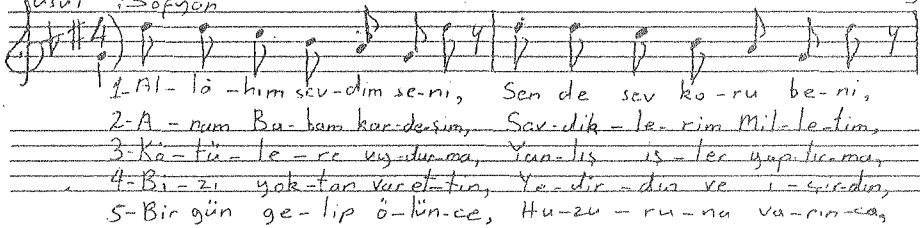 usul : Sofyan
4
1-Al-lâ-hım sev-dim se-ni, Sen de sev ko-ru be-ni,
2-A-nam Ba-bam kar-de-şim, Sev-dik-le-rim Mil-le-tim,
3-Kö-tü-le-re uy-dur-ma, Yan-lış iş-ler yap-tır-ma,
4-Bi-zi yok-tan var et-tin, Ye-dir-din ve i-çir-din,
5-Bir gün ge-lip ö-lün-ce, Hu-zu-ru-na va-rın-ca,